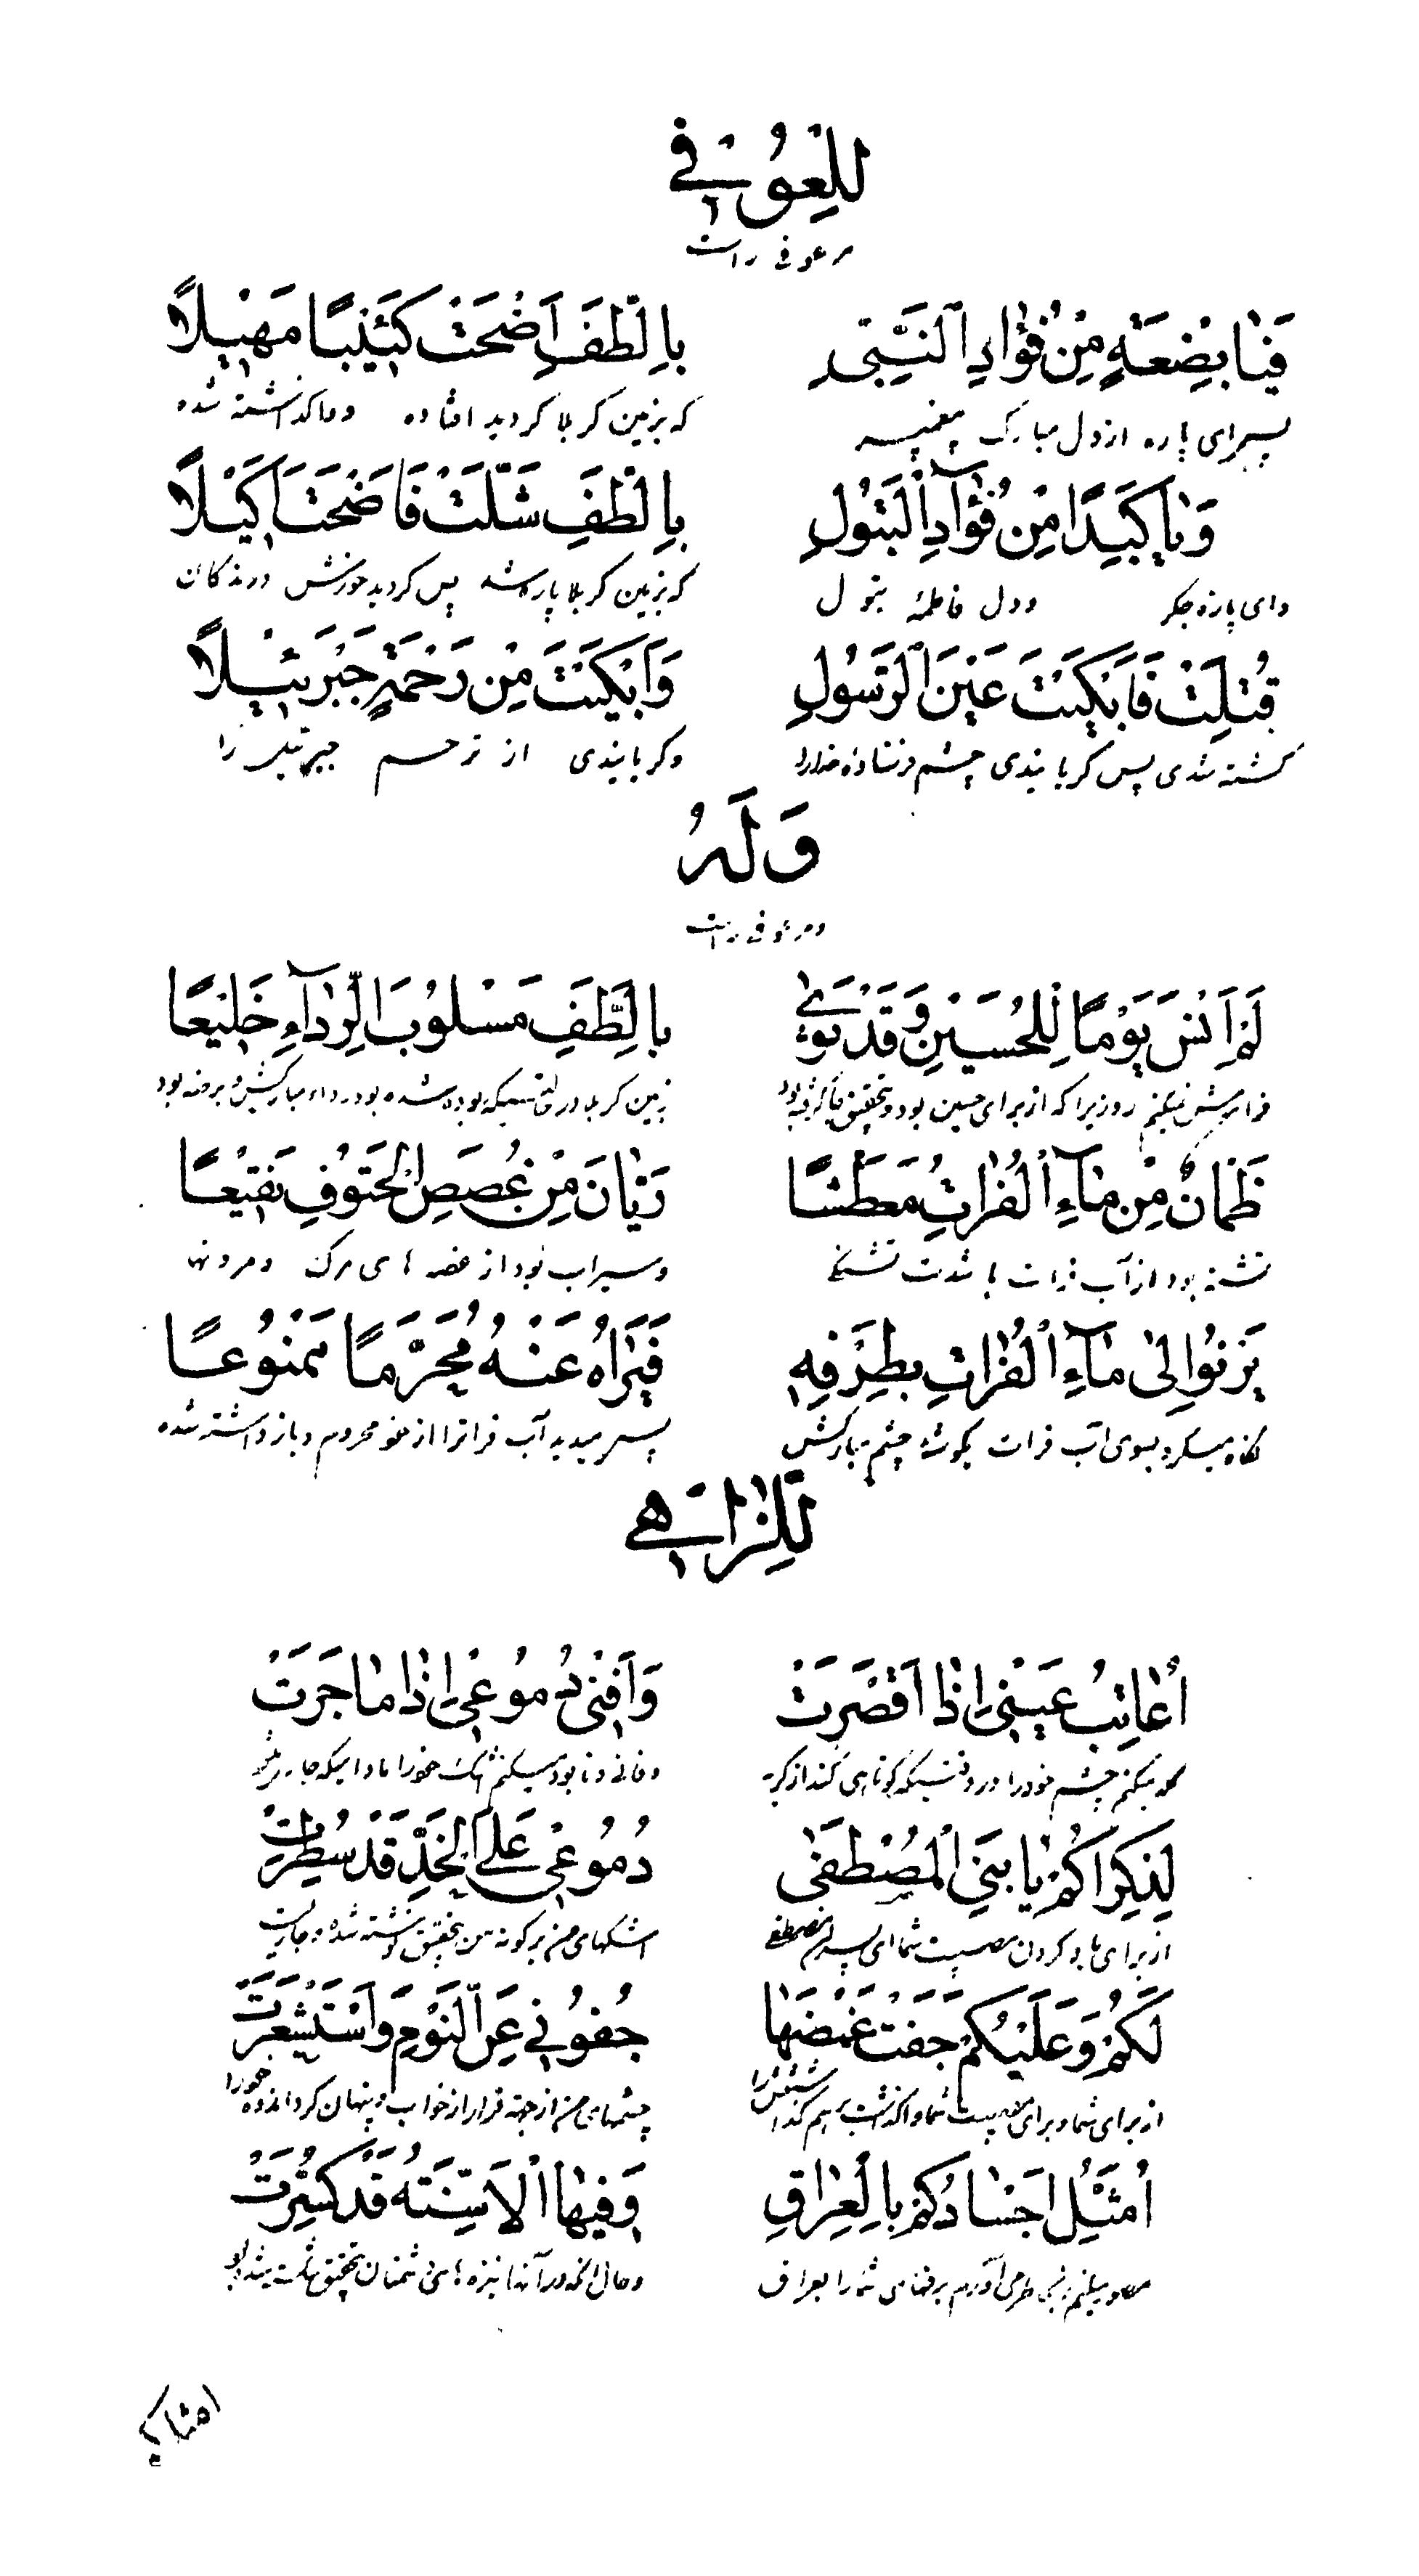 لِلْعَوْفِي
مر عوفی راست
فَيَا بِضْعَةٍ مِنْ فُؤَادِ النَّبِيِّ بِالطَّفِّ أَضْحَتْ كَثِيبًا مَهِيلًا
پس ای پاره از دل مبارک پیغمبر که بزمین کربلا کردید افتاده وواکذاشته شده
وَيَا كَبِدًا مِنْ فُؤَادِ الْبَتُولِ بِالطَّفِّ شَلَّتْ فَاضْحَتْ اَكِيلًا
وای پاره جکر ودل فاطمهٔ بتول که بزمین کربلا پاره شد پس کردید خورش درندکان
قُتِلْتَ فَاَبْكَيْتَ عَيْنَ الرَّسُولِ وَاَبْكَيْتَ مِنْ رَحْمَةٍ جَبْرَئِيلًا
کشته شدی پس کریانیدی چشم فرستادهٔ خدارا وکریانیدی از ترحم جبرئیل را
وَلَهُ
ومر عوفی راست
لَمْ اَنْسَ يَوْمًا لِلْحُسَيْنِ وَقَدْ ثَوَى بِالطَّفِّ مَسْلُوبَ الرِّدَآءِ خَلِيعًا
فراموش نمیکنم روزیرا که از برای حسین بود وبتحقیق زمین کربلا در حالتیکه ربوده شده بود رداء مبارکش و برهنه بود
ظَمْانٌ مِنْ مَآءِ الْفُرَاتِ مُعَطَّشًا رَيَّانَ مِنْ غُصَصِ الْحُتُوفِ نَقِيعًا
تشنه بود از آب فرات با شدت تشنکی وسیراب بود از غصه های مرک
يَرْنُوا اِلَى مَآءِ الْفُرَاتِ بِطَرْفِهِ فَيَرَاهُ عَنْهُ مُحَرَّمًا مَمْنُوعًا
نکاه میکرد بسوی آب فرات بکوشهٔ چشم مبارکش پس میدید آب فراترا از خود محروم وباز داشته شده
لِلزَّاهِي
اُعَاتِبُ عَيْنِي اِذَا اَقْصَرَتْ وَاَفْنِي دُمُوعِي اِذَا مَا جَرَتْ
کله میکنم چشم خودرا در وقتیکه کوتاهی کند از کریه وفانی ونابود میکنم اشک خودرا مادامیکه جاری
لِذِكْرَاكُمْ يَا بَنِي الْمُصْطَفَى دُمُوعِي عَلَى الْخَدِّ قَدْ سُطِّرَتْ
از برای یاد کردن مصیبت شما ای پسران مصطفی اشکهای من بر کونه من بتحقیق نوشته شده وجاریست
لَكُمْ وَعَلَيْكُمْ جَفَتْ غَمْضَهَا جُفُونِي عَنِ النَّوْمِ وَاسْتَشْعَرَتْ
از برای شما وبرای مصیبت شما چشمهای من از جهة فرار از خواب
اُمَثِّلُ اَجْسَادَكُمْ بِالْعِرَاقِ وَفِيهَا الْاَسِنَّةُ قَدْ كُسِّرَتْ
شمارا بعراق وحال انکه در آنها نیزه های دشمنان بتحقیق شکسته شده
امثلکم